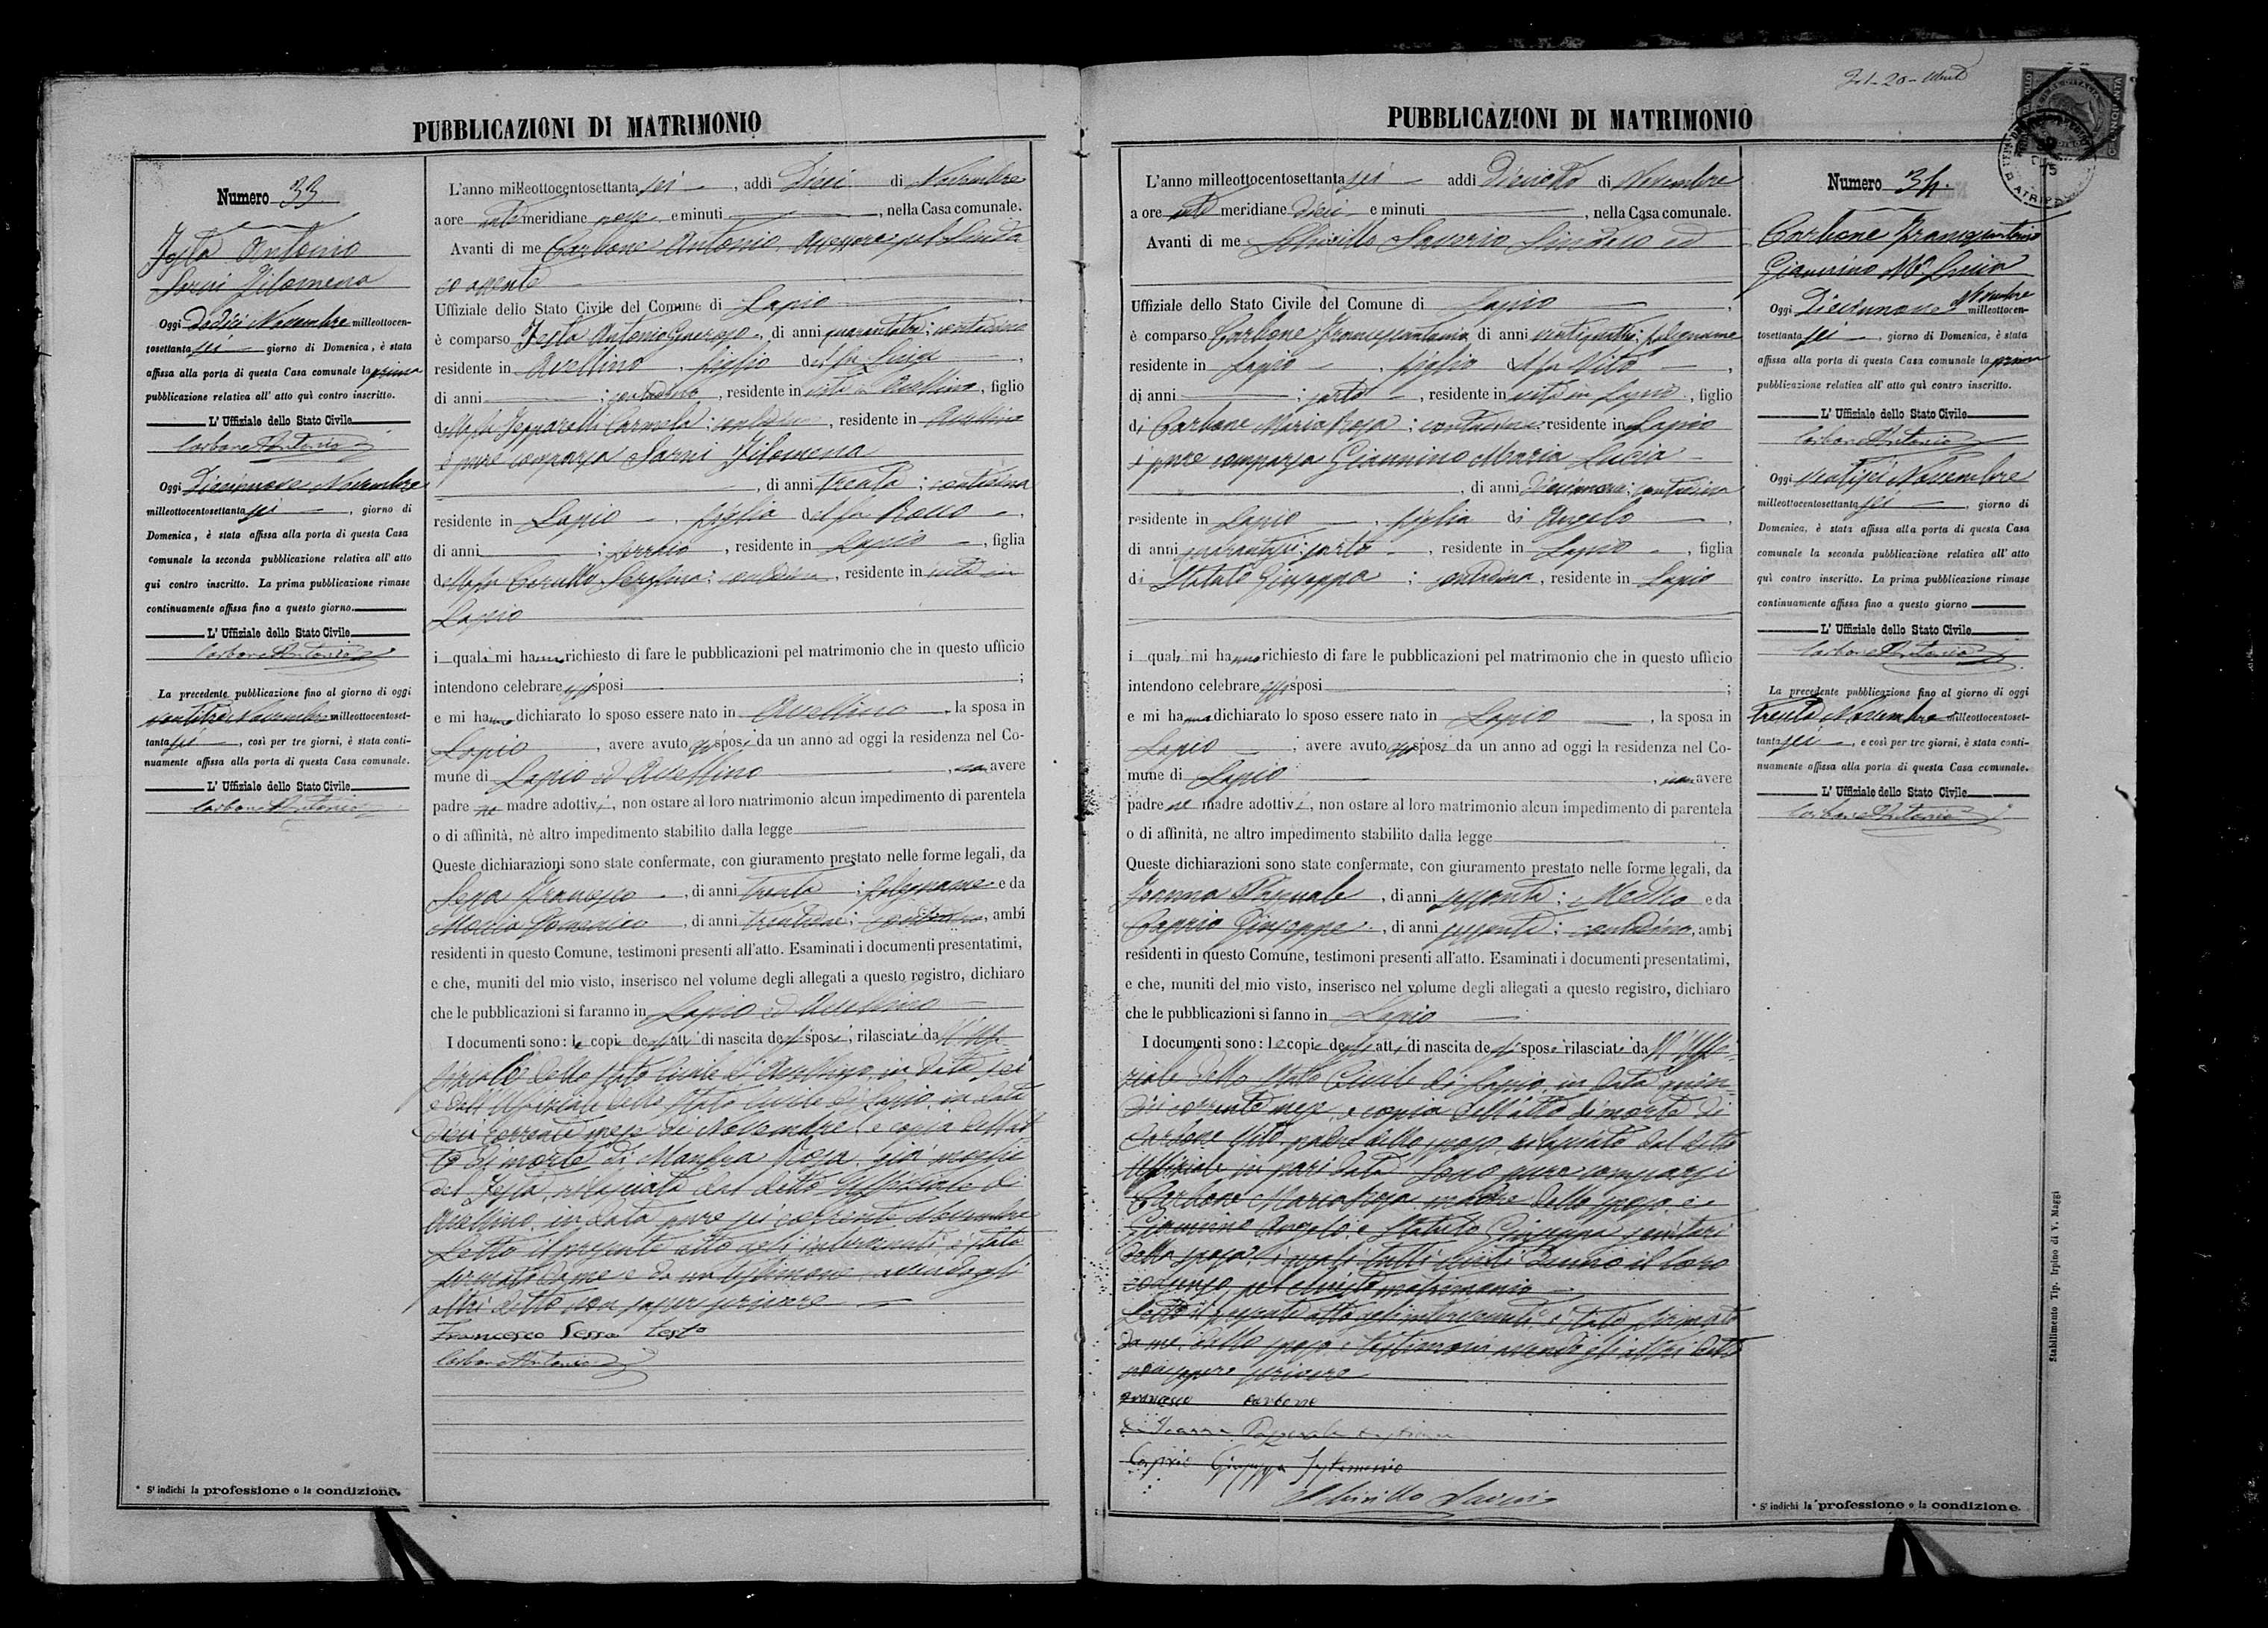 PUBBLICAZIONI DI MATRIMONIO
Numero 33
Testa Antonio
Sarni Filomena
Oggi Dodici Novembre milleottocen-
tosettanta sei giorno di Domenica, è stata
affissa alla porta di questa Casa comunale la prima
pubblicazione relativa all' atto quì contro inscritto.
L' Uffiziale dello Stato Civile
Carbone Antonio
Oggi Diecinove Novembre
milleottocentosettanta sei, giorno di
Domenica, è stata affissa alla porta di questa Casa
comunale la seconda pubblicazione relativa all' atto
qui contro inscritto. La prima pubblicazione rimase
continuamente affissa fino a questo giorno.
L' Uffiziale dello Stato Civile
Carbone Antonio
La precedente pubblicazione fino al giorno di oggi
ventitre Novembre milleottocentoset-
tanta sei, così per tre giorni, è stata conti-
nuamente affissa alla porta di questa Casa comunale.
L' Uffiziale dello Stato Civile
Carbone Antonio
* Si indichi la professione o la condizione.
L'anno milleottocentosettanta sei, addì Dieci di Novembre
a ore anti meridiane nove e minuti, nella Casa comunale.
Avanti di me Carbone Antonio Assessore pel Sinda
co assente
Uffiziale dello Stato Civile del Comune di Lapio
è comparso Testa Antonio, di anni quarantatre; contadino
residente in Avellino, figlio del fu Luigi,
di anni ; contadino, residente in vita in Avellino, figlio
della fu Carmela; contadina, residente in Avellino
è pure comparsa Sarni Filomena
, di anni trenta; contadina
residente in Lapio, figlia del fu Rocco,
di anni ; residente in Lapio, figlia
della fu Serafina; contadina, residente in vita in
Lapio
i quali mi hanno richiesto di fare le pubblicazioni pel matrimonio che in questo ufficio
intendono celebrare essi sposi;
e mi hanno dichiarato lo sposo essere nato in Avellino, la sposa in
Lapio, avere avuto gli sposi da un anno ad oggi la residenza nel Co-
mune di Lapio ed Avellino, non avere
padre ne madre adottivi, non ostare al loro matrimonio alcun impedimento di parentela
o di affinità, nè altro impedimento stabilito dalla legge
Queste dichiarazioni sono state confermate, con giuramento prestato nelle forme legali, da
Serra Francesco, di anni trenta; falegname e da
Domenico, di anni ; contadino, ambi
residenti in questo Comune, testimoni presenti all'atto. Esaminati i documenti presentatimi,
e che, muniti del mio visto, inserisco nel volume degli allegati a questo registro, dichiaro
che le pubblicazioni si faranno in Lapio ed Avellino
I documenti sono: le copie degli atti di nascita degli sposi, rilasciati da ll'Uffi
ziale dello Stato Civile di Avellino, in data sei
e dall'Uffiziale dello Stato Civile di Lapio, in data
dieci corrente mese di Novembre, e copia dell'at
to di morte di Rosa già moglie
del Testa, rilasciata dal detto Uffiziale di
Avellino, in data pure sei corrente Novembre
Letto il presente atto agli intervenuti è stato
firmato da me e da un testimone avendo gli
altri detto non saper scrivere
Francesco Serra testo
Carbone Antonio
PUBBLICAZIONI DI MATRIMONIO
L'anno milleottocentosettanta sei addì Dieciotto di Novembre
a ore anti meridiane dieci e minuti, nella Casa comunale.
Avanti di me Saverio Sindaco ed
Uffiziale dello Stato Civile del Comune di Lapio,
è comparso Carbone Francescantonio, di anni ventiquattro; falegname
residente in Lapio, figlio del fu Vito,
di anni ; sarto, residente in vita in Lapio, figlio
di Carbone Maria Rosa; contadina residente in Lapio
è pure comparsa Giannino Maria Lucia
, di anni diecinove; contadina
residente in Lapio, figlia di Angelo,
di anni quarantasei; sarto, residente in Lapio, figlia
di Statuto Giuseppa; contadina, residente in Lapio
i quali mi hanno richiesto di fare le pubblicazioni pel matrimonio che in questo ufficio
intendono celebrare essi sposi;
e mi hanno dichiarato lo sposo essere nato in Lapio, la sposa in
Lapio; avere avuto gli sposi da un anno ad oggi la residenza nel Co-
mune di Lapio, non avere
padre nè madre adottivi, non ostare al loro matrimonio alcun impedimento di parentela
o di affinità, ne altro impedimento stabilito dalla legge
Queste dichiarazioni sono state confermate, con giuramento prestato nelle forme legali, da
Ioanna Pasquale, di anni sessanta; Medico e da
Caprio Giuseppe, di anni sessanta; contadino, ambi
residenti in questo Comune, testimoni presenti all'atto. Esaminati i documenti presentatimi,
e che, muniti del mio visto, inserisco nel volume degli allegati a questo registro, dichiaro
che le pubblicazioni si fanno in Lapio
I documenti sono: le copie degli atti di nascita degli sposi rilasciati da ll'Uffi-
ziale dello Stato Civile di Lapio, in data quin-
dici corrente mese, e copia dell'atto di morte di
Carbone Vito, padre dello sposo, rilasciato dal detto
Uffiziale in pari data. Sono pure comparsi
Carbone Maria Rosa madre dello sposo, e
Giannino Angelo, e Statuto Giuseppa genitori
della sposa, i quali tutti danno il loro
consenso pel chiesto matrimonio
Letto il presente atto agli intervenuti è stato firmato
da me, dallo sposo, e testimoni avendo gli altri detto
non sapere scrivere
Francesco Carbone
Ioanna Pasquale testimone
Caprio Giuseppe Testimonio
Saverio
Numero 34.
Carbone Francescantonio
Giannino Mª Lucia
Oggi Diecinove Novembre milleottocen-
tosettanta sei, giorno di Domenica, è stata
affissa alla porta di questa Casa comunale la prima
pubblicazione relativa all' atto quì contro inscritto.
L' Uffiziale dello Stato Civile
Carbone Antonio
Oggi ventisei Novembre
milleottocentosettanta sei, giorno di
Domenica, è stata affissa alla porta di questa Casa
comunale la seconda pubblicazione relativa all' atto
quì contro inscritto. La prima pubblicazione rimase
continuamente affissa fino a questo giorno
L' Uffiziale dello Stato Civile
Carbone Antonio
La precedente pubblicazione fino al giorno di oggi
trenta Novembre milleottocentoset-
tanta sei, e così per tre giorni, è stata conti-
nuamente affissa alla porta di questa Casa comunale.
L' Uffiziale dello Stato Civile
Carbone Antonio
* Si indichi la professione o la condizione.
Stabilimento Tip. Irpino di V. Maggi